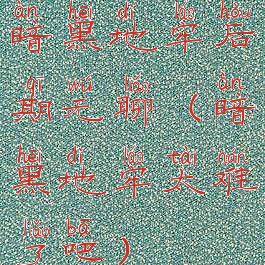 àn hēi dì láo hòu
暗黑地牢后
qī wú liáo àn
期无聊(暗
hēi dì láo tài nán
黑地牢太难
liǎo bā
了吧)